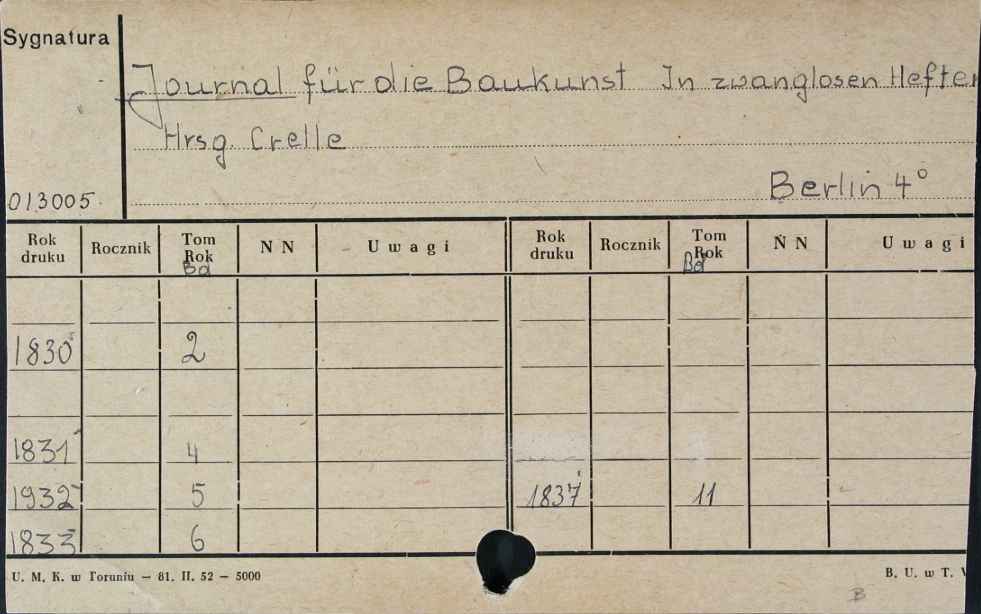 Sygnatura
Journal für die Baukunst In zwanglosen Heften
Hrsg. Crelle
013005.
Berlin 4°
Rok druku Rocznik Tom Rok Bd N N Uwagi Rok druku Rocznik Tom Rok Bd N N Uwagi
1830 2
1831 4
1932 5 1837 11
1833 6
U. M. K. w Toruniu — 81. II. 52 — 5000
B. U. w T.
B